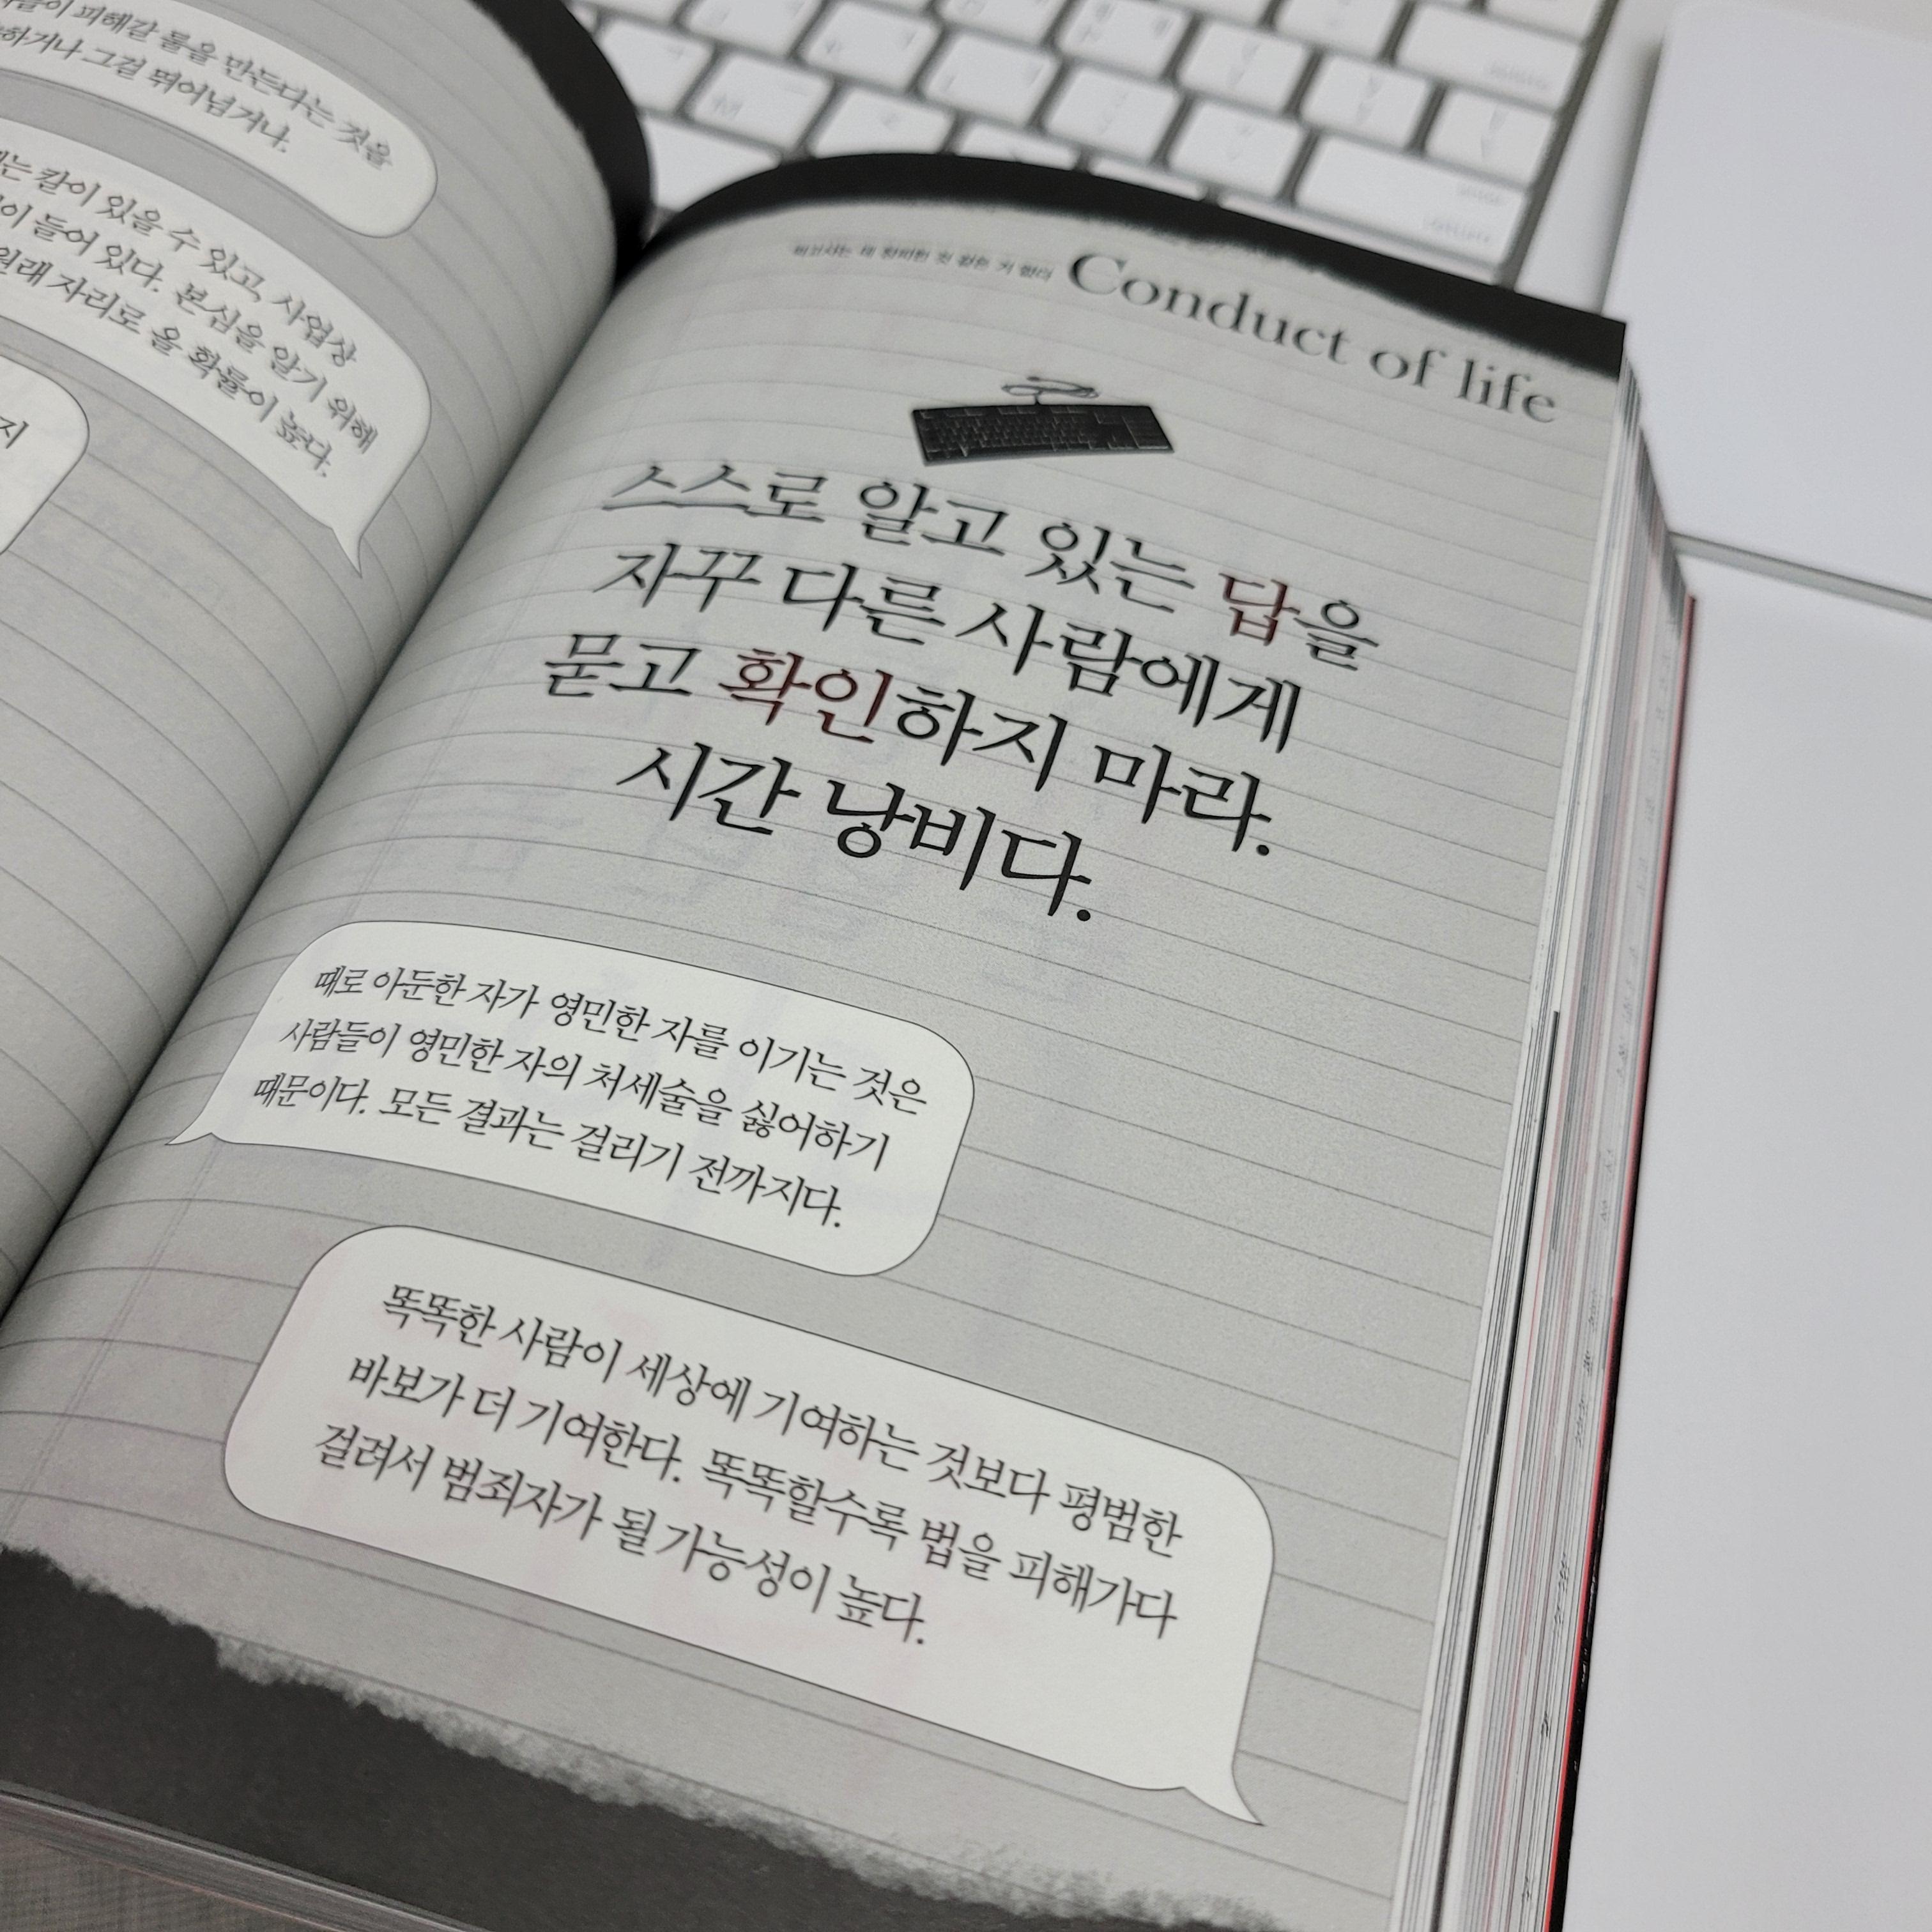 피해갈 틀을 만든다는 것을
하거나 그걸 뛰어넘거나.
는 칼이 있을 수 있고, 사업상
이 들어 있다. 본심을 알기 위해
원래 자리로 올 확률이 높다.
지
Conduct of life
스스로 알고 있는 답을
자꾸 다른 사람에게
묻고 확인하지 마라.
시간 낭비다.
때로 아둔한 자가 영민한 자를 이기는 것은
사람들이 영민한 자의 처세술을 싫어하기
때문이다. 모든 결과는 걸리기 전까지다.
똑똑한 사람이 세상에 기여하는 것보다 평범한
바보가 더 기여한다. 똑똑할수록 법을 피해가다
걸려서 범죄자가 될 가능성이 높다.